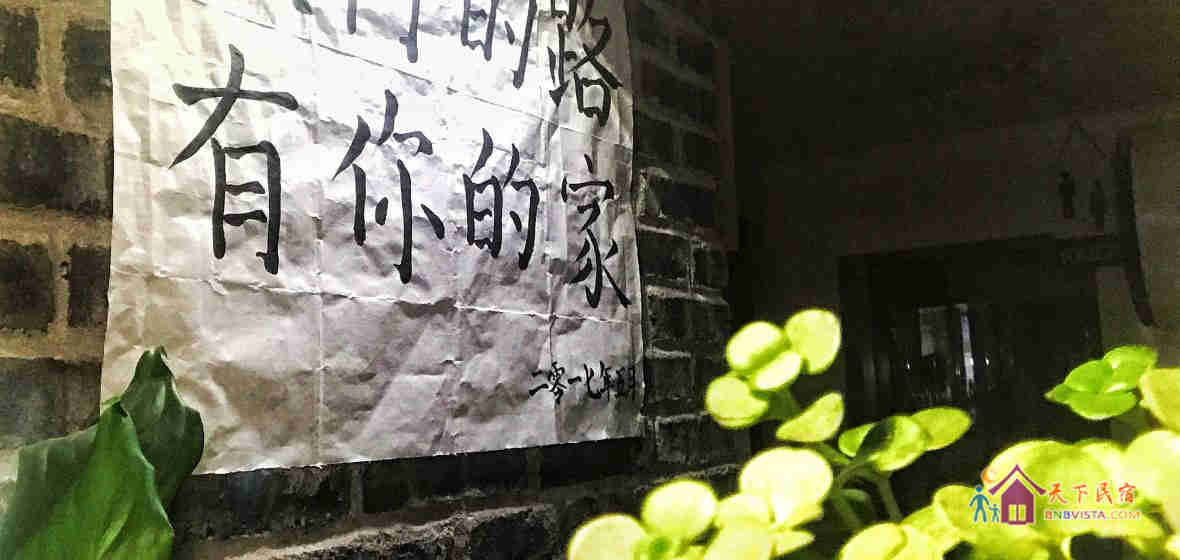 的路
有你的家
二零一七年五月
天下民宿
BNBVISTA.COM